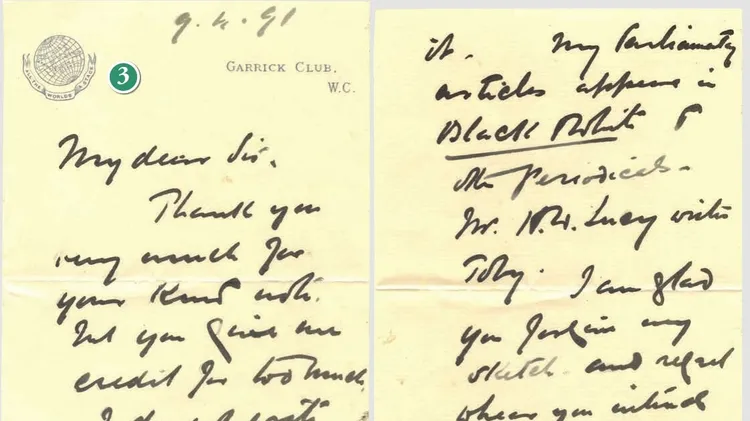 9.4.91
ALL THE WORLDS A STAGE
3
GARRICK CLUB,
W.C.
My dear Sir,
Thank you
very much for
your kind note.
But you give me
credit for too much
I do not write
it. My Parliamentary
articles appear in
Black & White &
other Periodicals.
Mr. H.W. Lucy writes
Toby. I am glad
you forgive my
sketch and regret
you intend